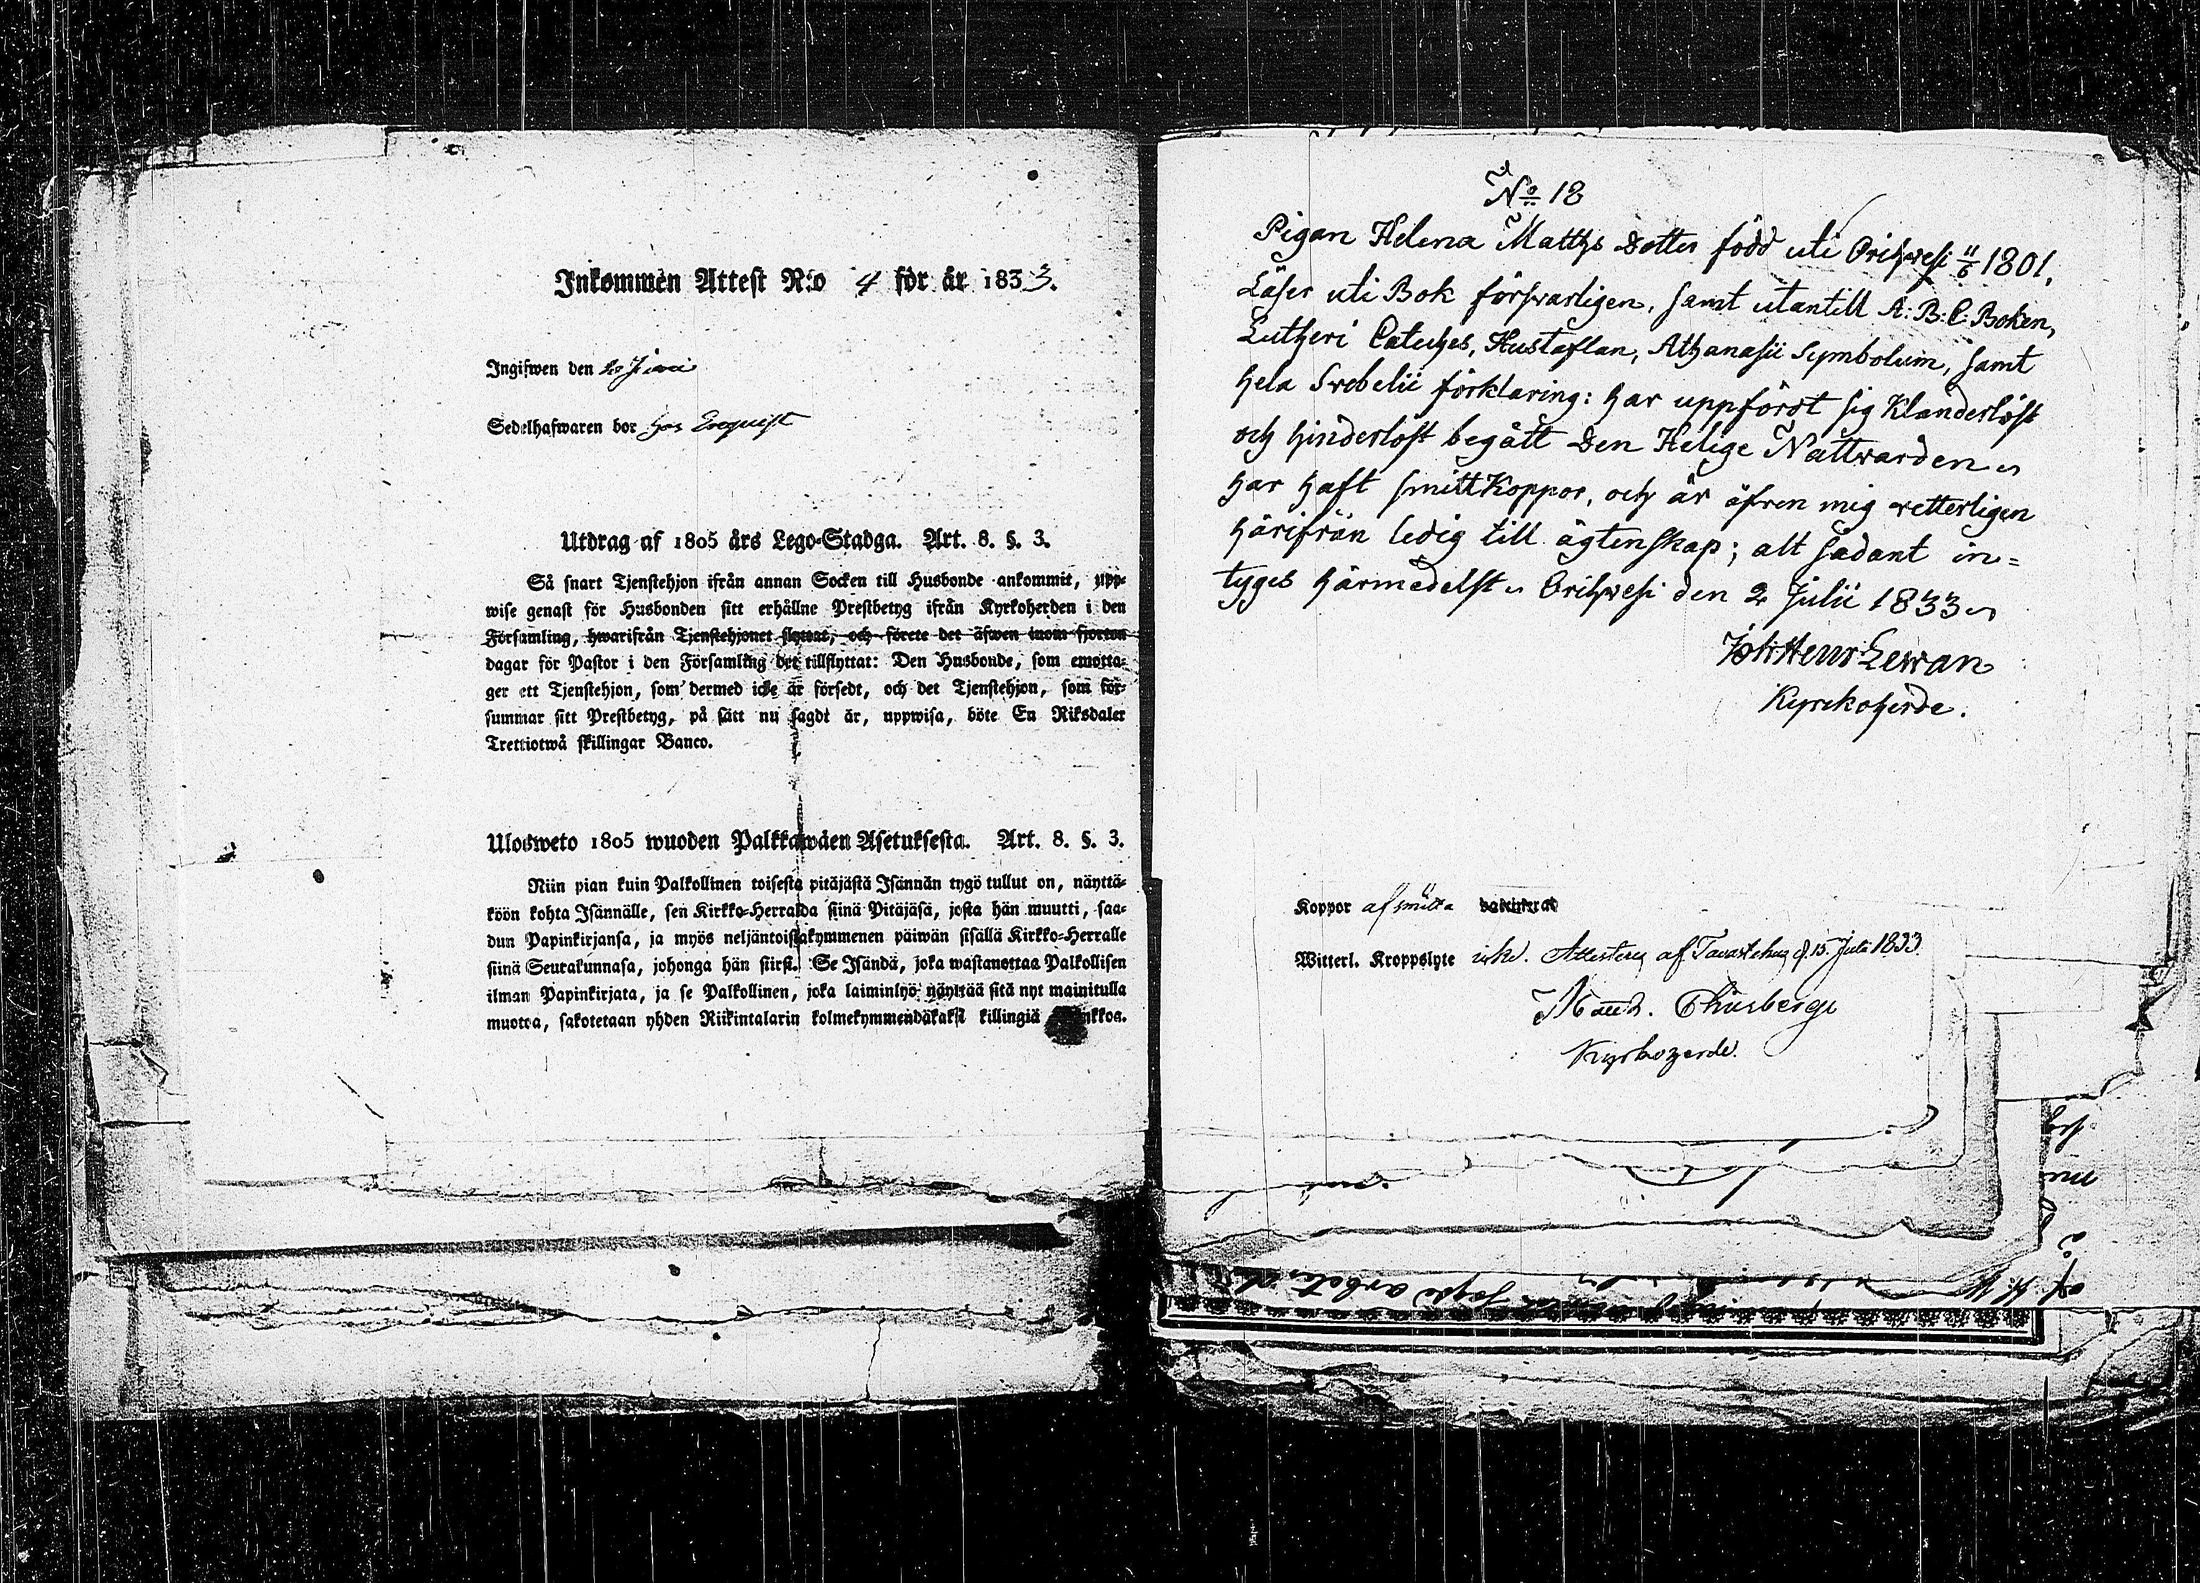 Inkommen Attest N:o 4 för år 1833.
Ingifwen den
Sedelhafwaren bor hos
Utdrag af 1805 års Lego-Stadga. Art. 8. §. 3.
Så snart Tjenstehjon ifrån annan Socken till Husbonde ankommit, upp-
wise genast för Husbonden sitt erhållne Prestbetyg ifrån Kyrkoherden i den
Församling, hwarifrån Tjenstehjonet flyttat, och förete det äfwen inom fjorton
dagar för Pastor i den Församling det tillflyttat: Den Husbonde, som emotta-
ger ett Tjenstehjon, som dermed icke är försedt, och det Tjenstehjon, som för-
summar sitt Prestbetyg, på sätt nu sagdt är, uppwisa, böte En Riksdaler
Trettiotwå skillingar Banco.
Ulosweto 1805 wuoden Palkkawäen Asetuksesta. Art. 8. §. 3.
Niin pian kuin Palkollinen toisesta pitäjästä Isännän tygö tullut on, näyttä-
köön kohta Isännälle, sen Kirkko-Herralda siinä Pitäjäsä, josta hän muutti, saa-
dun Papinkirjansa, ja myös neljäntoistakymmenen päiwän sisällä Kirkko-Herralle
siinä Seurakunnasa, johonga hän siirsi. Se Isändä, joka wastanottaa Palkollisen
ilman Papinkirjata, ja se Palkollinen, joka laiminlyö näyttää sitä nyt mainitulla
muotoa, sakotetaan yhden Riikintalarin kolmekymmendäkaksi killingiä Pankkoa.
No 18
Pigan Helena Matths Dotter född uti Orihvesi 11/6 1801,
Läser uti Bok försvarligen, samt utantill A:B:C: Boken,
Lutheri Cateches, Hustaflan, Athanasii Symbolum, samt
hela Svebelii förklaring: har uppfördt sig Klanderlöst
och hinderlöst begått Den Helige Nattvarden
har haft smittKoppor, och är äfven mig vetterligen
härifrån ledig till ägtenskap; alt sådant in=
tyges härmedelst Orihvesi den 2 Julii 1833
Joh Henr Lewan
Kyrckoherde.
Koppor af smitta vaccinerad
Witterl. Kroppslyte icke. Attesteras af Tavastehus d. 15. Juli 1833.
Thusberg
Kyrkoherde.